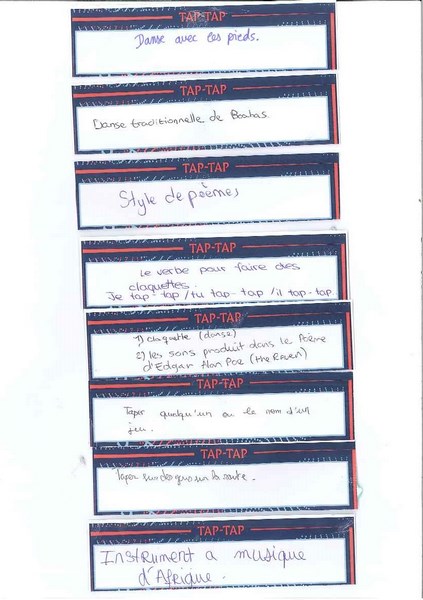 TAP-TAP
Danse avec les pieds.
TAP-TAP
Danse traditionnelle de
TAP-TAP
Style de poèmes
TAP-TAP
Le verbe pour faire des
claquettes.
Je tap-tap /tu tap-tap /il tap-tap.
TAP-TAP
1) claquette (danse)
2) les sons produit dans le Poème
d'Edgar Alan Poe (the Raven)
TAP-TAP
Taper quelqu'un ou le nom d'un
jeu.
TAP-TAP
Taper sur
TAP-TAP
Instrument a musique
d'Afrique.